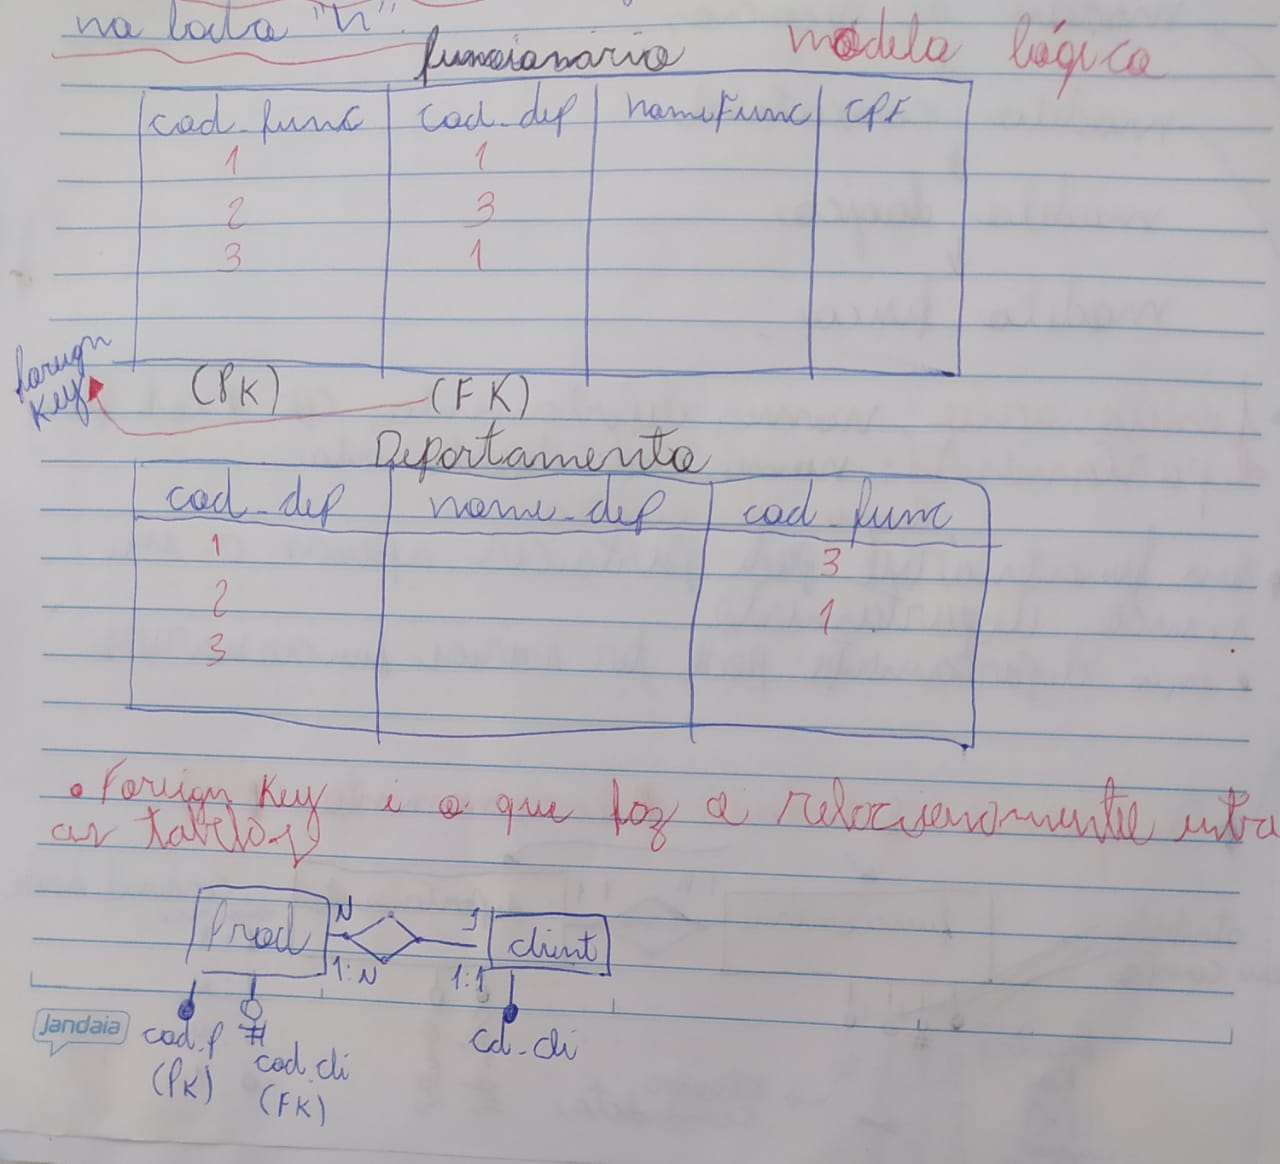 na lado "n".
funcionário modelo lógico
cod_func cod_dep nomeFunc CPF
1 1
2 3
3 1
foreign
key
(PK) (FK)
Departamento
cod_dep nome_dep cod_func
1 3
2 1
3
• Foreign Key é o que faz o relacionamento entre
as tabelas
Prod N 1 client
1:N 1:1
Jandaia
cod_p # cd_cli
cod_cli
(PK) (FK)